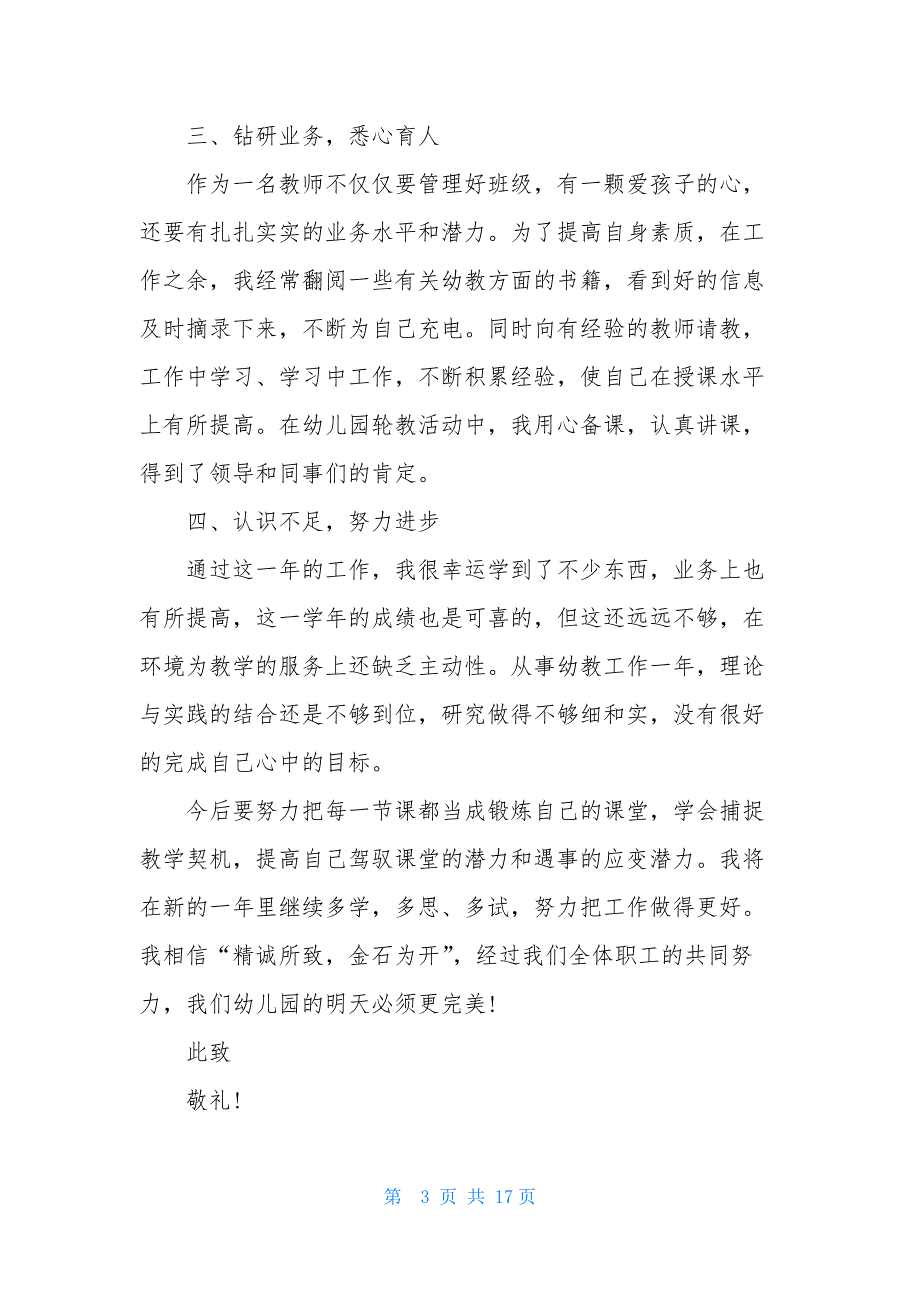 三、钻研业务，悉心育人
作为一名教师不仅仅要管理好班级，有一颗爱孩子的心，
还要有扎扎实实的业务水平和潜力。为了提高自身素质，在工
作之余，我经常翻阅一些有关幼教方面的书籍，看到好的信息
及时摘录下来，不断为自己充电。同时向有经验的教师请教，
工作中学习、学习中工作，不断积累经验，使自己在授课水平
上有所提高。在幼儿园轮教活动中，我用心备课，认真讲课，
得到了领导和同事们的肯定。
四、认识不足，努力进步
通过这一年的工作，我很幸运学到了不少东西，业务上也
有所提高，这一学年的成绩也是可喜的，但这还远远不够，在
环境为教学的服务上还缺乏主动性。从事幼教工作一年，理论
与实践的结合还是不够到位，研究做得不够细和实，没有很好
的完成自己心中的目标。
今后要努力把每一节课都当成锻炼自己的课堂，学会捕捉
教学契机，提高自己驾驭课堂的潜力和遇事的应变潜力。我将
在新的一年里继续多学，多思、多试，努力把工作做得更好。
我相信“精诚所致，金石为开”，经过我们全体职工的共同努
力，我们幼儿园的明天必须更完美!
此致
敬礼!
第 3 页 共 17页